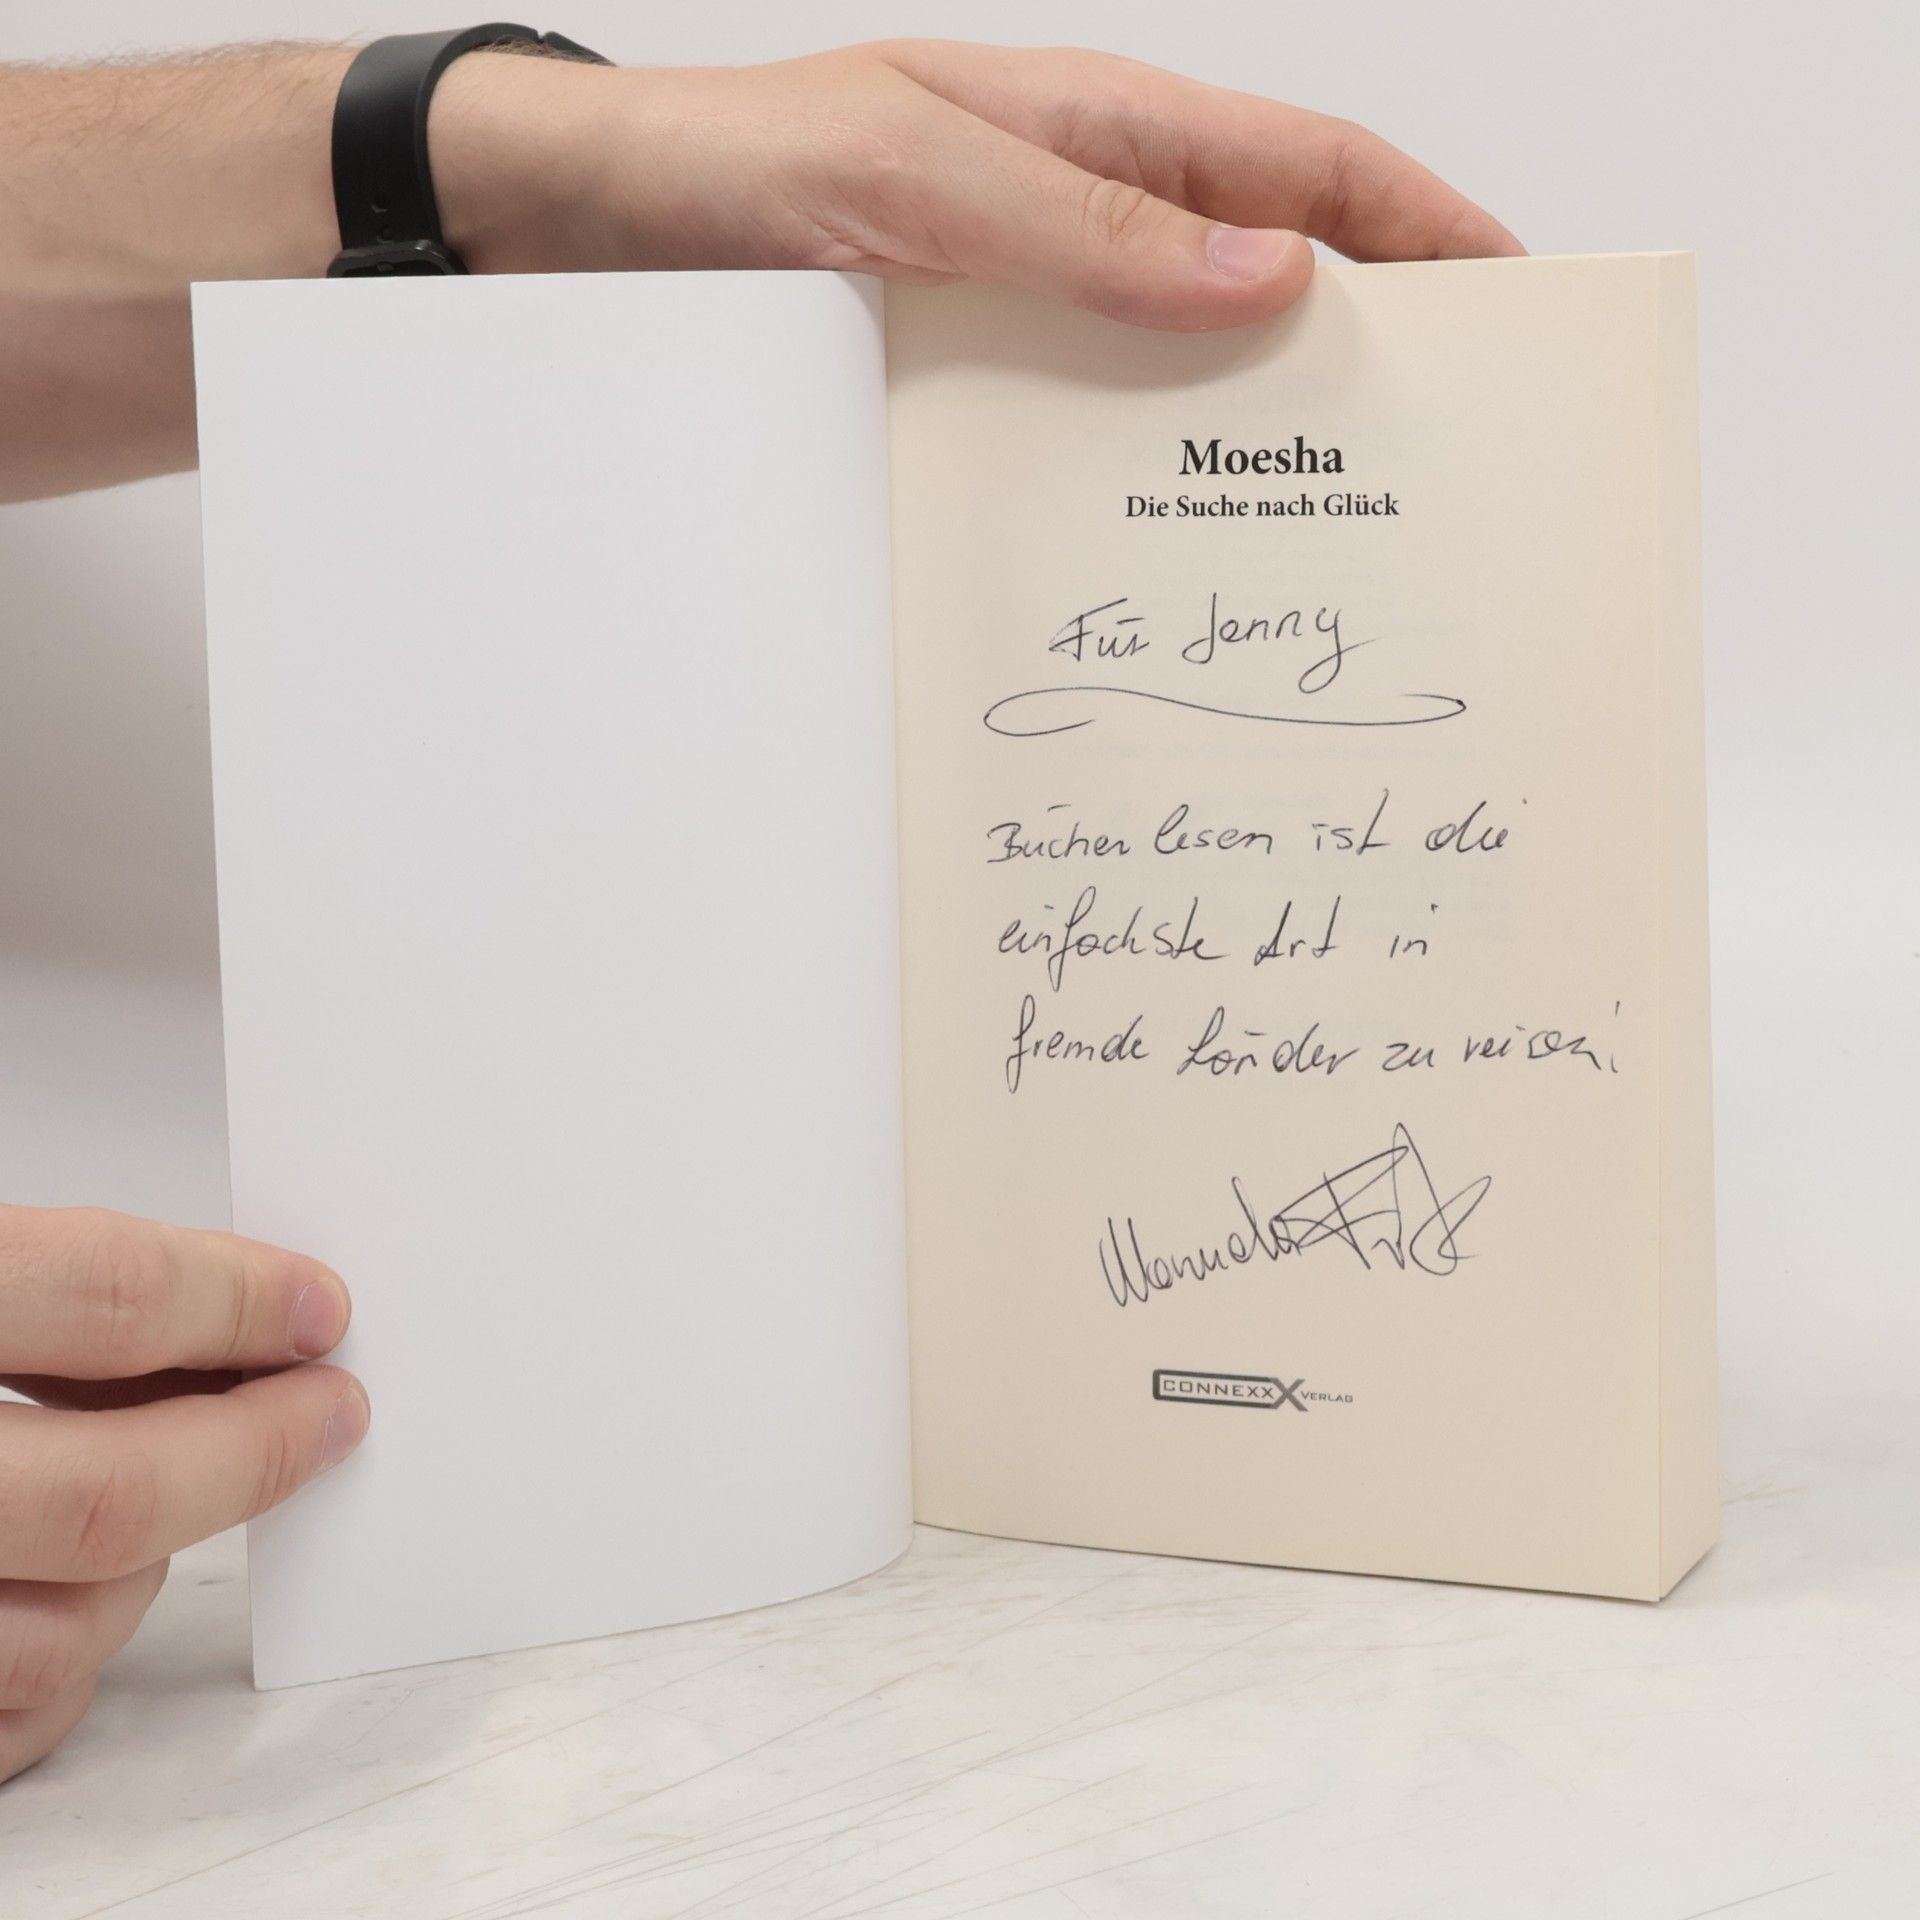 Moesha
Die Suche nach Glück
Für Jenny
Bücher lesen ist die
einfachste Art in
fremde Länder zu reisen!
Manuela
CONNEXX VERLAG